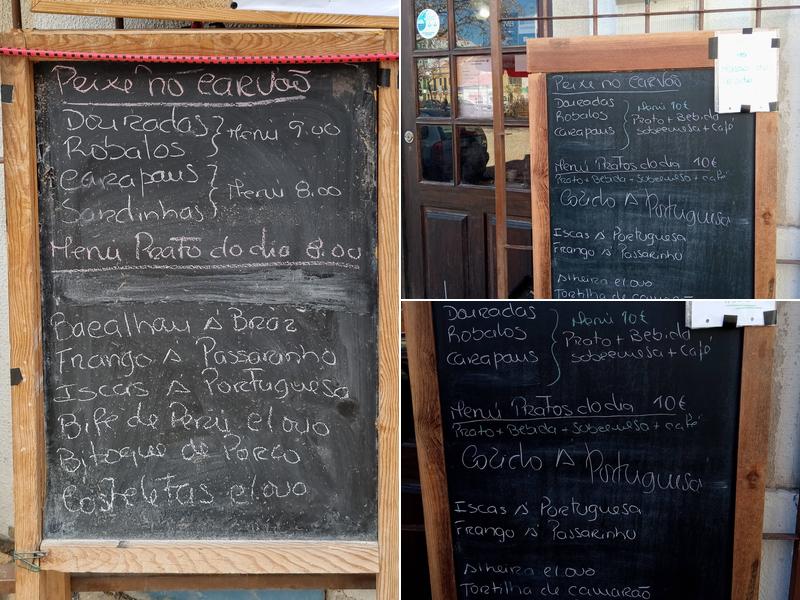 Peixe no carvão
Douradas
Robalos
Menú 9.00
Carapaus
Sardinhas
Menú 8.00
Menú Prato do dia 8.00
Bacalhau Á Bráz
Frango Á Passarinho
Iscas Á Portuguesa
Bife de Perú c/ovo
Bitoque de Porco
Costeletas c/ovo
Peixe no carvão
Douradas
Robalos
Carapaus
Menú 10€
Prato + Bebida
Sobremesa + Café
Menú Pratos do dia 10€
Prato + Bebida + Sobremesa + café
Cozido Á Portuguesa
Iscas Á Portuguesa
Frango Á Passarinho
Alheira c/ovo
Tortilha de camarão
Douradas
Robalos
Carapaus
Menú 10€
Prato + Bebida
Sobremesa + Café
Menú Pratos do dia 10€
Prato + Bebida + Sobremesa + café
Cozido Á Portuguesa
Iscas Á Portuguesa
Frango Á Passarinho
Alheira c/ovo
Tortilha de camarão